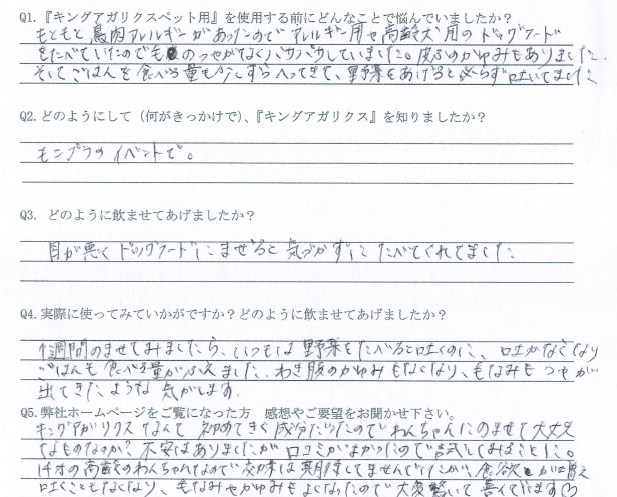 Q1.『キングアガリクスペット用』を使用する前にどんなことで悩んでいましたか?
もともと鳥肉アレルギーがあったのでアレルギー用や高齢犬用のドッグフード
をたべていたので毛のつやがなくパサパサしていました。皮ふのかゆみもありました。
そしてごはんを食べる量も少しずつへってきて、野菜をあげると必らず吐いてました
Q2.どのようにして(何がきっかけで)、『キングアガリクス』を知りましたか?
モニプラのイベントで。
Q3. どのように飲ませてあげましたか?
目が悪くドッグフードにまぜると気づかずにたべてくれてました
Q4.実際に使ってみていかがですか?どのように飲ませてあげましたか?
1週間のませてみましたら、いつもは野菜をたべると吐くのに、吐かなくなり
ごはんも食べる量がふえました。わき腹のかゆみもなくなり、毛なみもつやが
出てきたような気がします。
Q5.弊社ホームページをご覧になった方 感想やご要望をお聞かせ下さい。
キングアガリクスなんて初めてきく成分だったのでわんちゃんにのませて大丈夫
なものなのか?不安はありましたが口コミがよかったので試してみることに。
14才の高齢のわんちゃんなので効果は期待してませんでしたが、食欲が増え
吐くこともなくなり、毛なみやかゆみもよくなったので大変驚いて喜んでいます